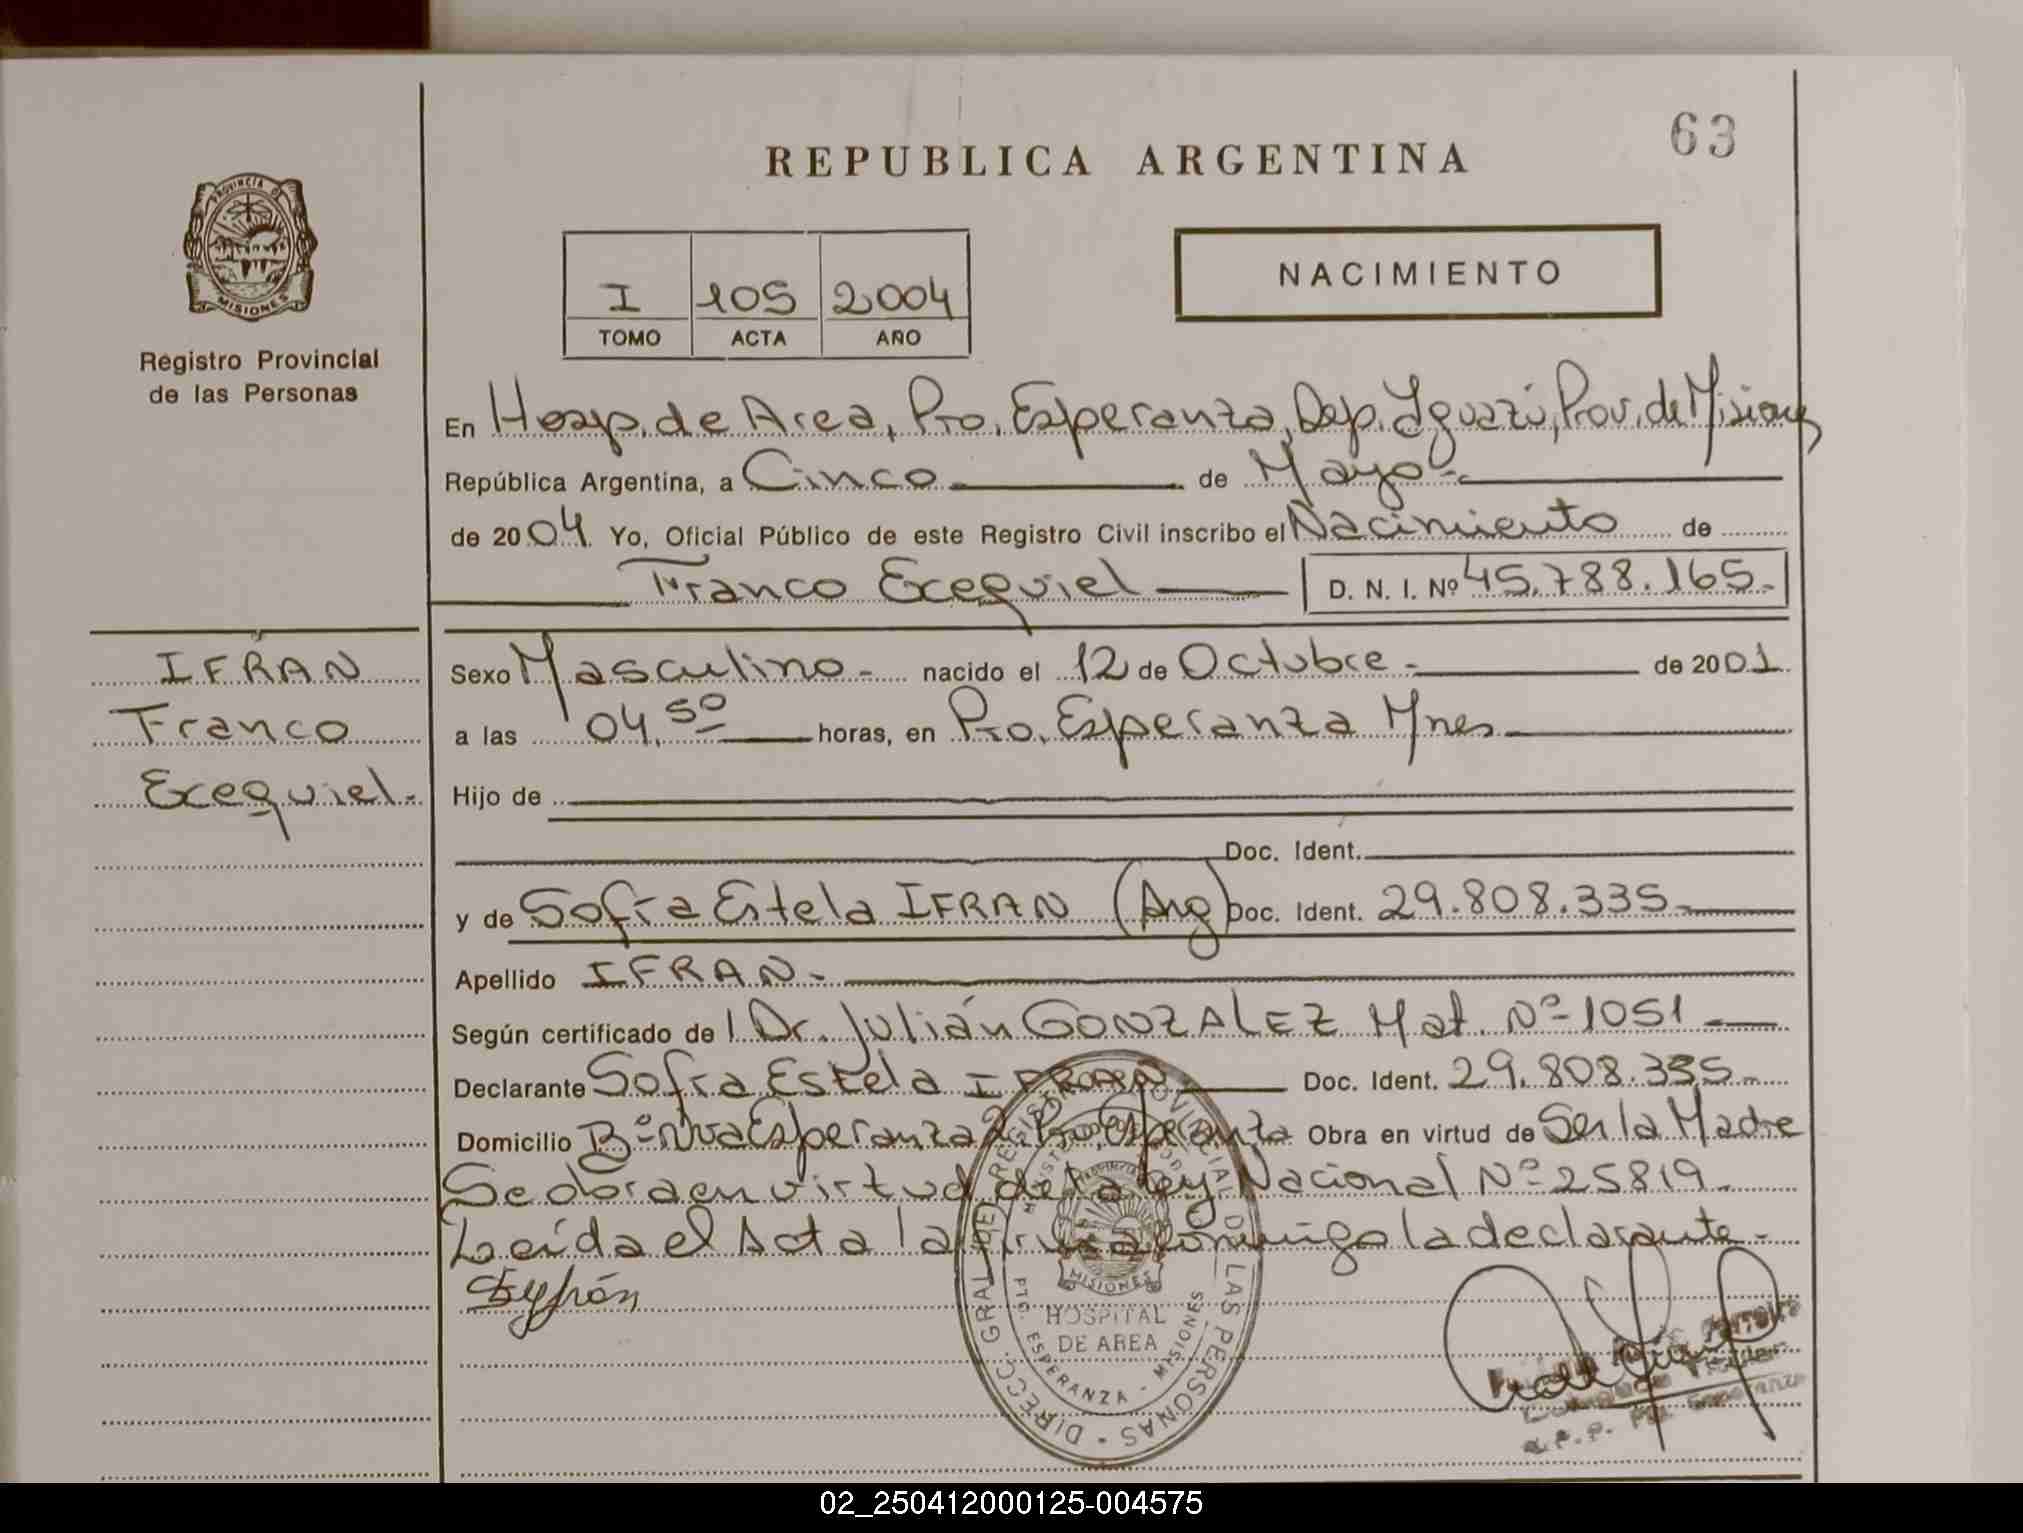 63
REPUBLICA ARGENTINA
PROVINCIA DE
MISIONES
Registro Provincial
de las Personas
I 105 2004
TOMO ACTA AÑO
NACIMIENTO
En Hosp. de Area, Pto. Esperanza, Dep. Iguazú, Prov. de Misiones
República Argentina, a Cinco de Mayo.-
de 2004. Yo, Oficial Público de este Registro Civil inscribo el Nacimiento de
Franco Exequiel D. N. I. Nº 45.788.165.-
IFRAN
Franco
Exequiel.-
Sexo Masculino.- nacido el 12 de Octubre.- de 2001.
a las 04,50 horas, en Pto. Esperanza Mnes
Hijo de
Doc. Ident.
y de Sofía Estela IFRAN (Arg) Doc. Ident. 29.808.335.-
Apellido IFRAN.-
Según certificado de Dr. Julián GONZALEZ Mat. Nº 1051
Declarante Sofía Estela IFRAN Doc. Ident. 29.808.335.-
Domicilio Bº Nva Esperanza 2 Pto. Esperanza Obra en virtud de Ser la Madre
Se obra en virtud de la Ley Nacional Nº 25819.
Leída el Acta la firma conmigo la declarante.-
DIRECC. GRAL. DEL REGISTRO PROVINCIAL DE LAS PERSONAS
PROVINCIA
MISIONES
HOSPITAL
DE AREA
PTO. ESPERANZA - MISIONES
02_250412000125-004575